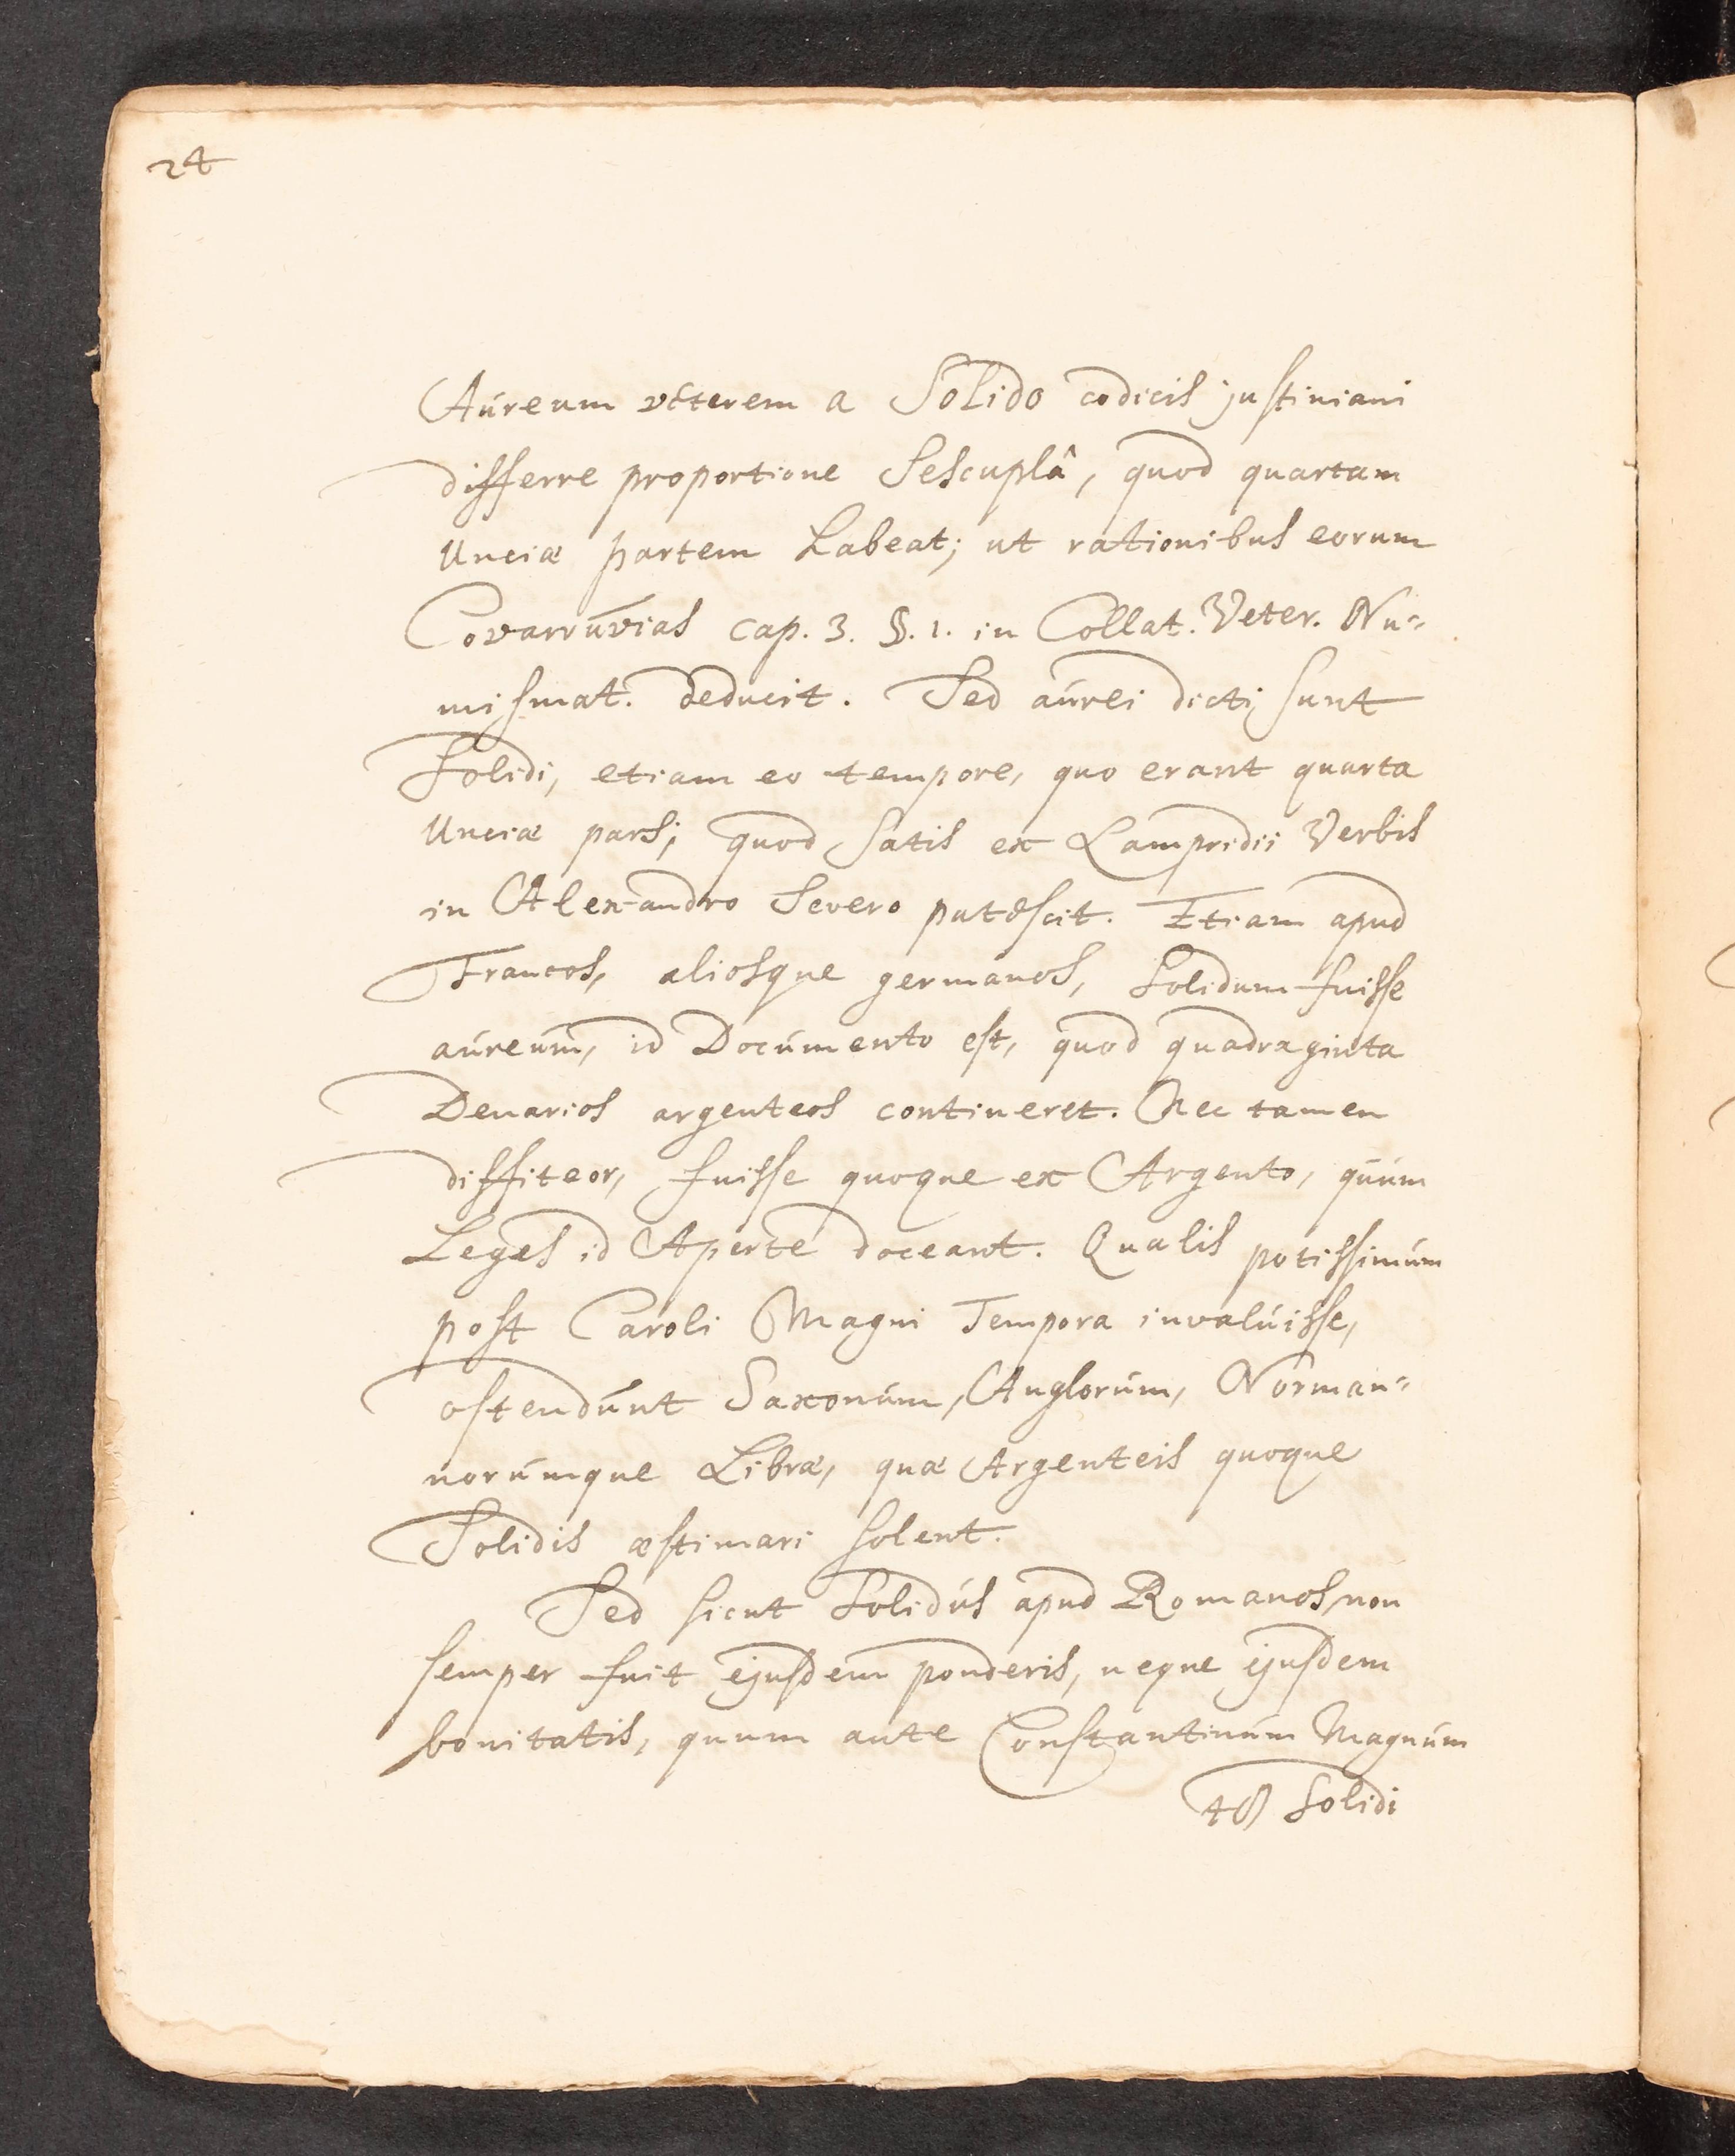 24
Aúreum veterem a Solido codicis justiniani
differre proportione Sescuplâ, quod quartam
Unciæ partem habeat; ut rationibus eorum
Covarrúvias cap. 3. §. 1. in Collat. Veter. Nu=
mismat. deducit. Sed aúrei dicti sunt
Solidi, etiam eo tempore, quo erant quarta
Unciæ pars; quod satis ex Lampridii Verbis
in Alexandro Severo patescit. Etiam apud
Francos, aliosque germanos, Solidum fuisse
aúreúm, id Documento est, quod quadraginta
Denarios argenteos contineret. Nec tamen
diffiteor, fuisse quoque ex Argento, quúm
Leges id Aperte doceant. Qualis potissimúm
post Caroli Magni Tempora invalúisse,
ostendúnt Saxonúm, Anglorúm, Norman=
norúmque Libræ, quæ Argenteis quoque
Solidis æstimari solent.
Sed sicut Solidús apud Romanos, non
semper fuit ejusdem ponderis, neque ejusdem
bonitatis, quum ante Constantinúm Magnúm
48 Solidi